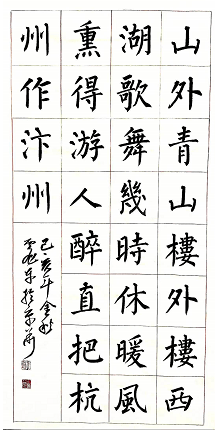 山外青山樓外樓西
湖歌舞幾時休暖風
熏得游人醉直把杭
州作汴州
己亥年金秋